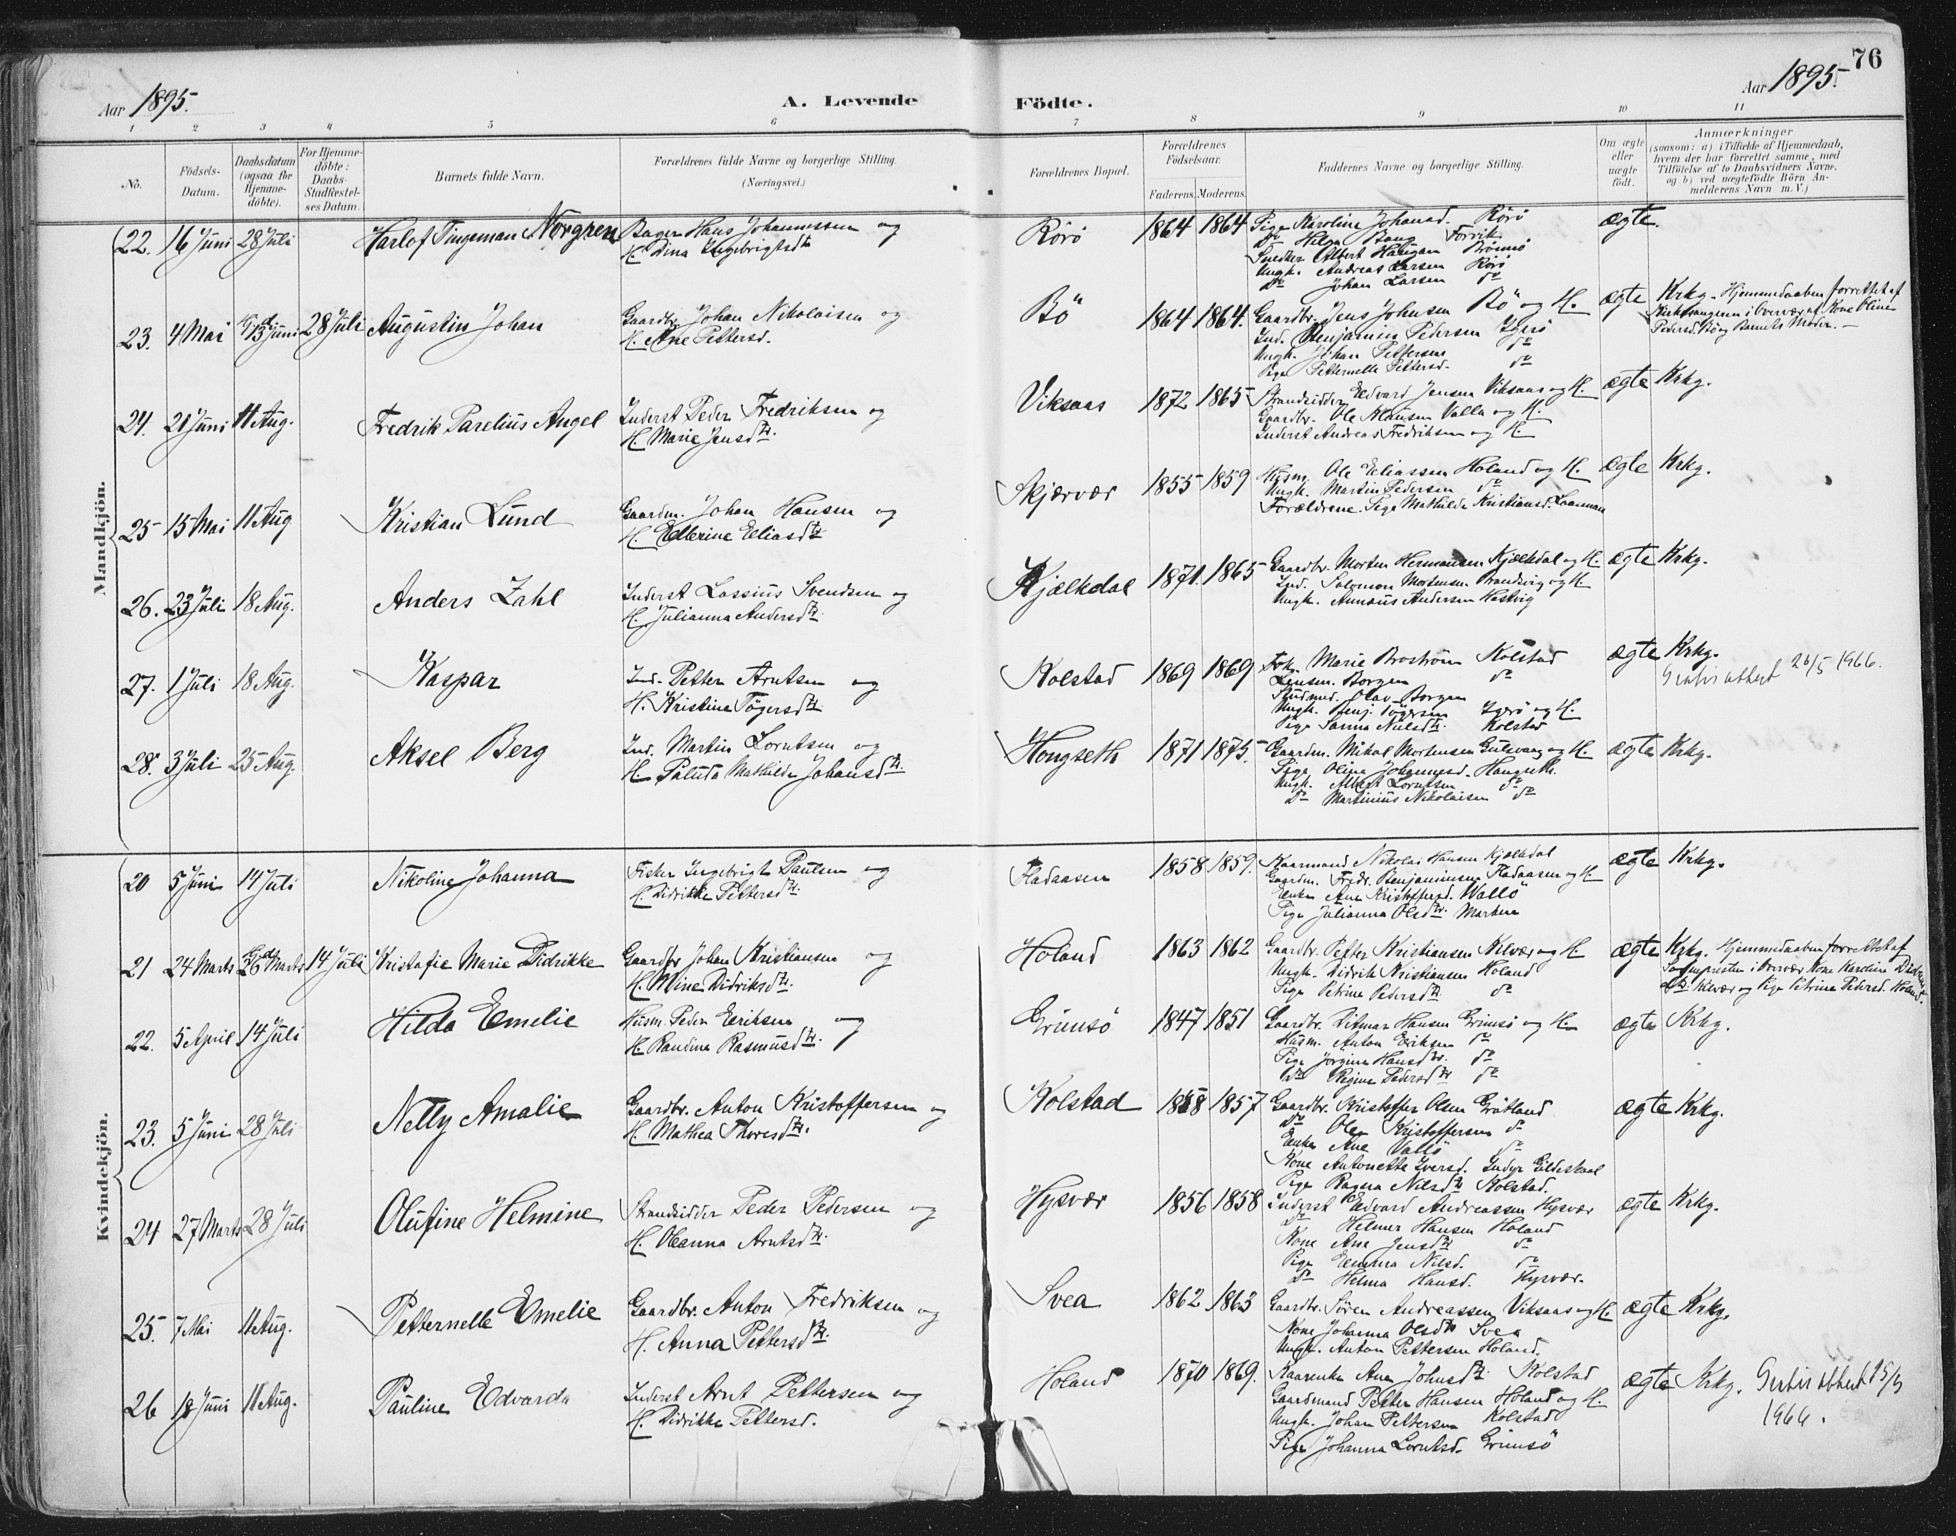 76
Aar 1895.
A. Levende Födte.
Aar 1895.
1 2 3 4 5 6 7 8 9 10 11
No.
Födsels-
Datum.
Daabsdatum
(ogsaa for
Hjemme-
döbte).
For Hjemme-
döbte:
Daabs-
Stadfæstel-
ses Datum.
Barnets fulde Navn.
Forældrenes fulde Navne og borgerlige Stilling.
(Næringsvei.)
Forældrenes Bopæl.
Forældrenes
Födselsaar.
Faderens. Moderens.
Faddernes Navne og borgerlige Stilling.
Om ægte
eller
uægte
födt.
Anmærkninger
(saasom: a) i Tilfælde af Hjemmedaab,
hvem der har forrettet samme, med
Tilföielse af to Daabsvidners Navne.
og b) ved uægtefödte Börn An-
melderens Navn m. V.)
Mandkjön.
22. 16 Juni 28 Juli Harlof Tingeman Norgren
Bager Hans Johannessen og
H. Dina Ingebrigtsdtr
Rörö 1864 1864
Pige Karoline Johansd. Rörö
do Hilga Bang Forvik
Snedker Albert Haugan Brönnö
Ungk. Andreas Larsen Rörö
do Johan Larsen do
ægte.
23. 4 Mai 13 Juni 28 Juli Augustin Johan
Gaardbr. Johan Nikolaisen og
H. Ane Pettersd.
Bö 1864 1864.
Gaardbr. Jens Johnsen Bö og H.
Ind. Benjamin Pedersen Ygerö
Ungk. Johan Pettersen do
Pige Petternelle Pettersd. do
ægte Krkg. Hjemmedaaben forrettet af
Kirkesangeren i Overvær af Kone Oline
Pedersd. Bö og Barnets Moder. —
24. 21 Juni 11 Aug. Fredrik Parelius Angel
Inderst Peder Fredriksen og
H. Marie Jensdtr.
Viksaas 1872 1865
Strandsidder Edvard Jensen Viksaas og H.
Gaardbr. Ole Klausen Valla og H.
Inderst Andreas Fredriksen og H.
ægte Krkg.
25 15 Mai 11 Aug Kristian Lund
Gaardm. Johan Hansen og
H. Ellerine Eliasdtr
Skjærvær 1855 1859
Husm. Ole Eliassen Holand og H.
Ungk. Martin Pedersen do
Forældrene. Pige Mathilde Kristiansd. Laanman
ægte Krkg.
26. 23 Juli 18 Aug. Anders Zahl
Inderst Lassius Svendsen og
H. Julianna Andersdtr.
Kjælkdal 1871. 1865
Gaardbr. Morten Hermansen Kjælkdal og H.
Ind. Salomon Mortensen Brandsvig og H
Ungk. Annæus Andersen Hestvig
ægte Krkg.
27. 1 Juli 18 Aug. Kaspar
Ind. Petter Arntsen og
H. Kristine Tögersdtr.
Kolstad 1869 1869
Frk. Marie Broström Kolstad
Lensm. Borgen do
Studmed. Olav Borgen
Ungk. Benj. Tögersen Ygerö og H.
Pige Sanna Nilsdtr. Kolstad
ægte Krkg.
Gratis attest 26/5 1966.
28. 3 Juli 25 Aug. Aksel Berg
Ind. Martin Lorntsen og
H. Paluda Mathilde Johansdtr.
Hongseth 1871 1875.
Gaardm. Mikal Mortensen Gulsvaag og H.
Pige Olina Johannesd. Hangseth.
Ungk. Albert Lorntsen do
do Martinius Nikolaisen do
ægte Krkg.
Kvindekjön.
20 5 Juni 14 Juli Nikoline Johanna
Fisker Ingebrigt Paulsen og
H. Didrikke Pettersdtr.
Fladaasen 1858 1859.
Kaarmand Nikolai Hansen Kjælkdal
Gaardm. Fredr. Benjaminsen Fladaasen og H
Enken Ane Kristoffersd. Wallö
Pige Julianna Olsdtr. Marken
ægte Krkg.
21 24 Marts 26 Marts 14 Juli Kristafie Marie Didrikke
Gaardbr Johan Kristiansen og
H. Mine Didriksdtr.
Holand 1863 1862
Gaardbr. Petter Kristiansen Kilvær og H
Ungk. Didrik Kristiansen Holand
Pige Petrine Pedersdtr. do
ægte Krkg. Hjemmedaaben forrettet af
Sognepresten i Overvær Kone Karoline Didriks-
dtr Kilvær og Pige Petrine Pedersd. Holand.
22. 5 April 14 Juli Hilda Emelie
Husm. Peder Eriksen og
H. Randine Rasmusdtr.
Grimsö 1847 1851
Gaardbr. Ditmar Hansen Grimsö og H.
Husm. Anton Eriksen do
Pige Jörgine Hansdtr. do
do Regine Pedersdtr do
ægte Krkg.
23. 5 Juni 28 Juli Nelly Amalie
Gaardbr. Anton Kristoffersen og
H. Mathea Thoresdtr.
Kolstad 1858 1857
Gaardbr. Kristoffer Olsen Gråtland
do Ole Kristoffersen do
Enke Ane Vallö do
Kone Antonette Iversd. Indyr Gildeskaal
Pige Ragna Nilsdtr Kolstad.
ægte Krkg.
24 27 Marts 28 Juli Olufine Helmine
Strandsidder Peder Pedersen og
H. Oleanna Arntsdtr.
Hysvær 1856 1858
Inderst Edvard Andreassen Hysvær
do Helmer Hansen Holand
Kone Ane Jensdtr do
Pige Emma Nilsd. do
do Helma Hansd. Hysvær.
ægte Krkg.
25. 7 Mai 11 Aug. Petternelle Emelie
Gaardbr. Anton Fredriksen og
H. Anna Pettersdtr.
Svea 1862 1863
Gaardbr. Sören Andreassen Viksaas og H.
Kone Johanna Olsdtr Svea
Ungk. Anton Pettersen Holand.
ægte Krkg.
26 18 Juni 11 Aug. Pauline Edvarda
Inderst Arnt Pettersen og
H. Didrikke Pettersd.
Holand 1870 1869.
Kaarenke Ane Johnsdtr. Kolstad
Gaardmand Petter Hansen Holand og H.
Ungk. Johan Pettersen Kolstad
Pige Johanna Lorntsd. Grimsö
ægte Krkg. Gratis attest 15/3
1966.